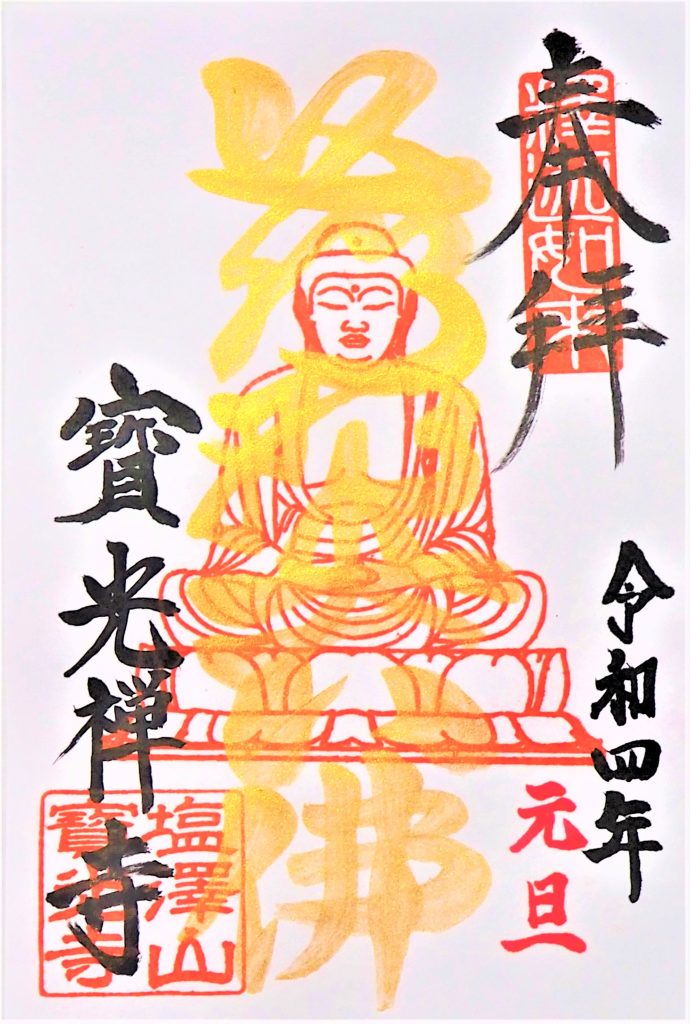 奉拝
釋迦如来
令和四年
元旦
佛
寶光禅寺
塩澤山
寶光寺